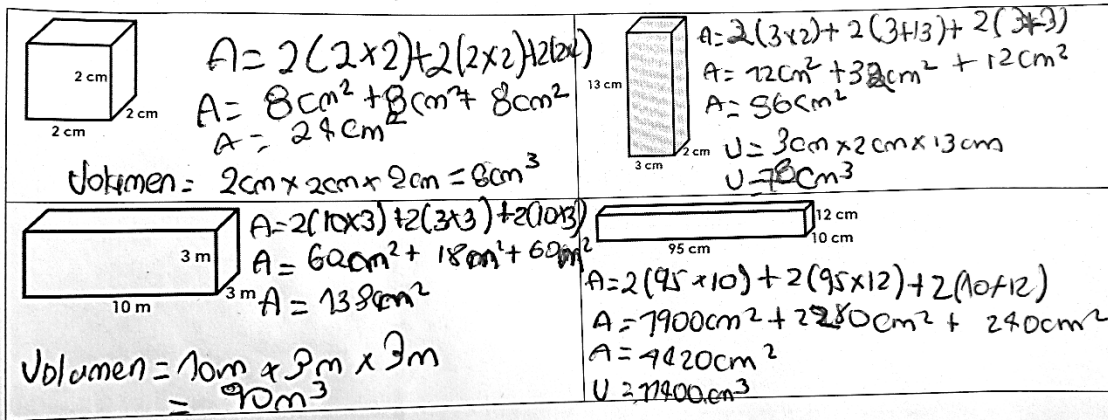 2 cm
2 cm
2 cm
A= 2(2×2)+2(2×2)+2(2×2)
A= 8cm² + 8cm² + 8cm²
A= 24cm²
Volumen = 2cm × 2cm × 2cm = 8cm³
13 cm
2 cm
3 cm
A=2(3×2)+ 2(3+13)+ 2(3+3)
A= 12cm² + 32cm² + 12cm²
A= 56cm²
V= 3cm×2cm×13cm
V=78cm³
3 m
3 m
10 m
A=2(10×3)+2(3×3)+2(10×3)
A= 60cm² + 18cm² + 60m²
A= 138cm²
Volumen = 10m × 3m × 3m
= 90m³
12 cm
10 cm
95 cm
A=2(95×10) + 2(95×12)+ 2(10+12)
A= 1900cm² + 2280cm² + 240cm²
A= 4420cm²
V=11400cm³